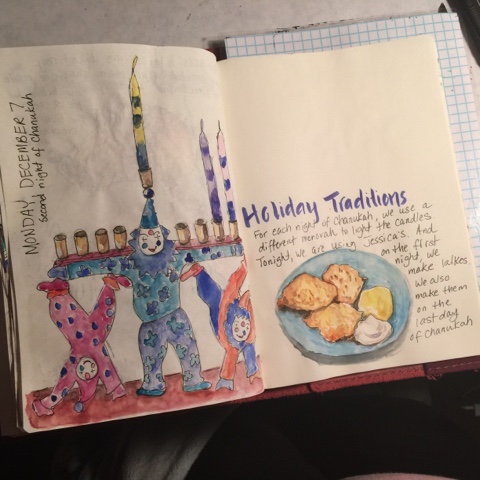 MONDAY DECEMBER 7
second night of Chanukah
Holiday Traditions
For each night of Chanukah, we use a
different menorah to light the candles.
Tonight, we are using Jessica's. And
on the first
night, we
make latkes
we also
make them
on the
last day
of Chanukah